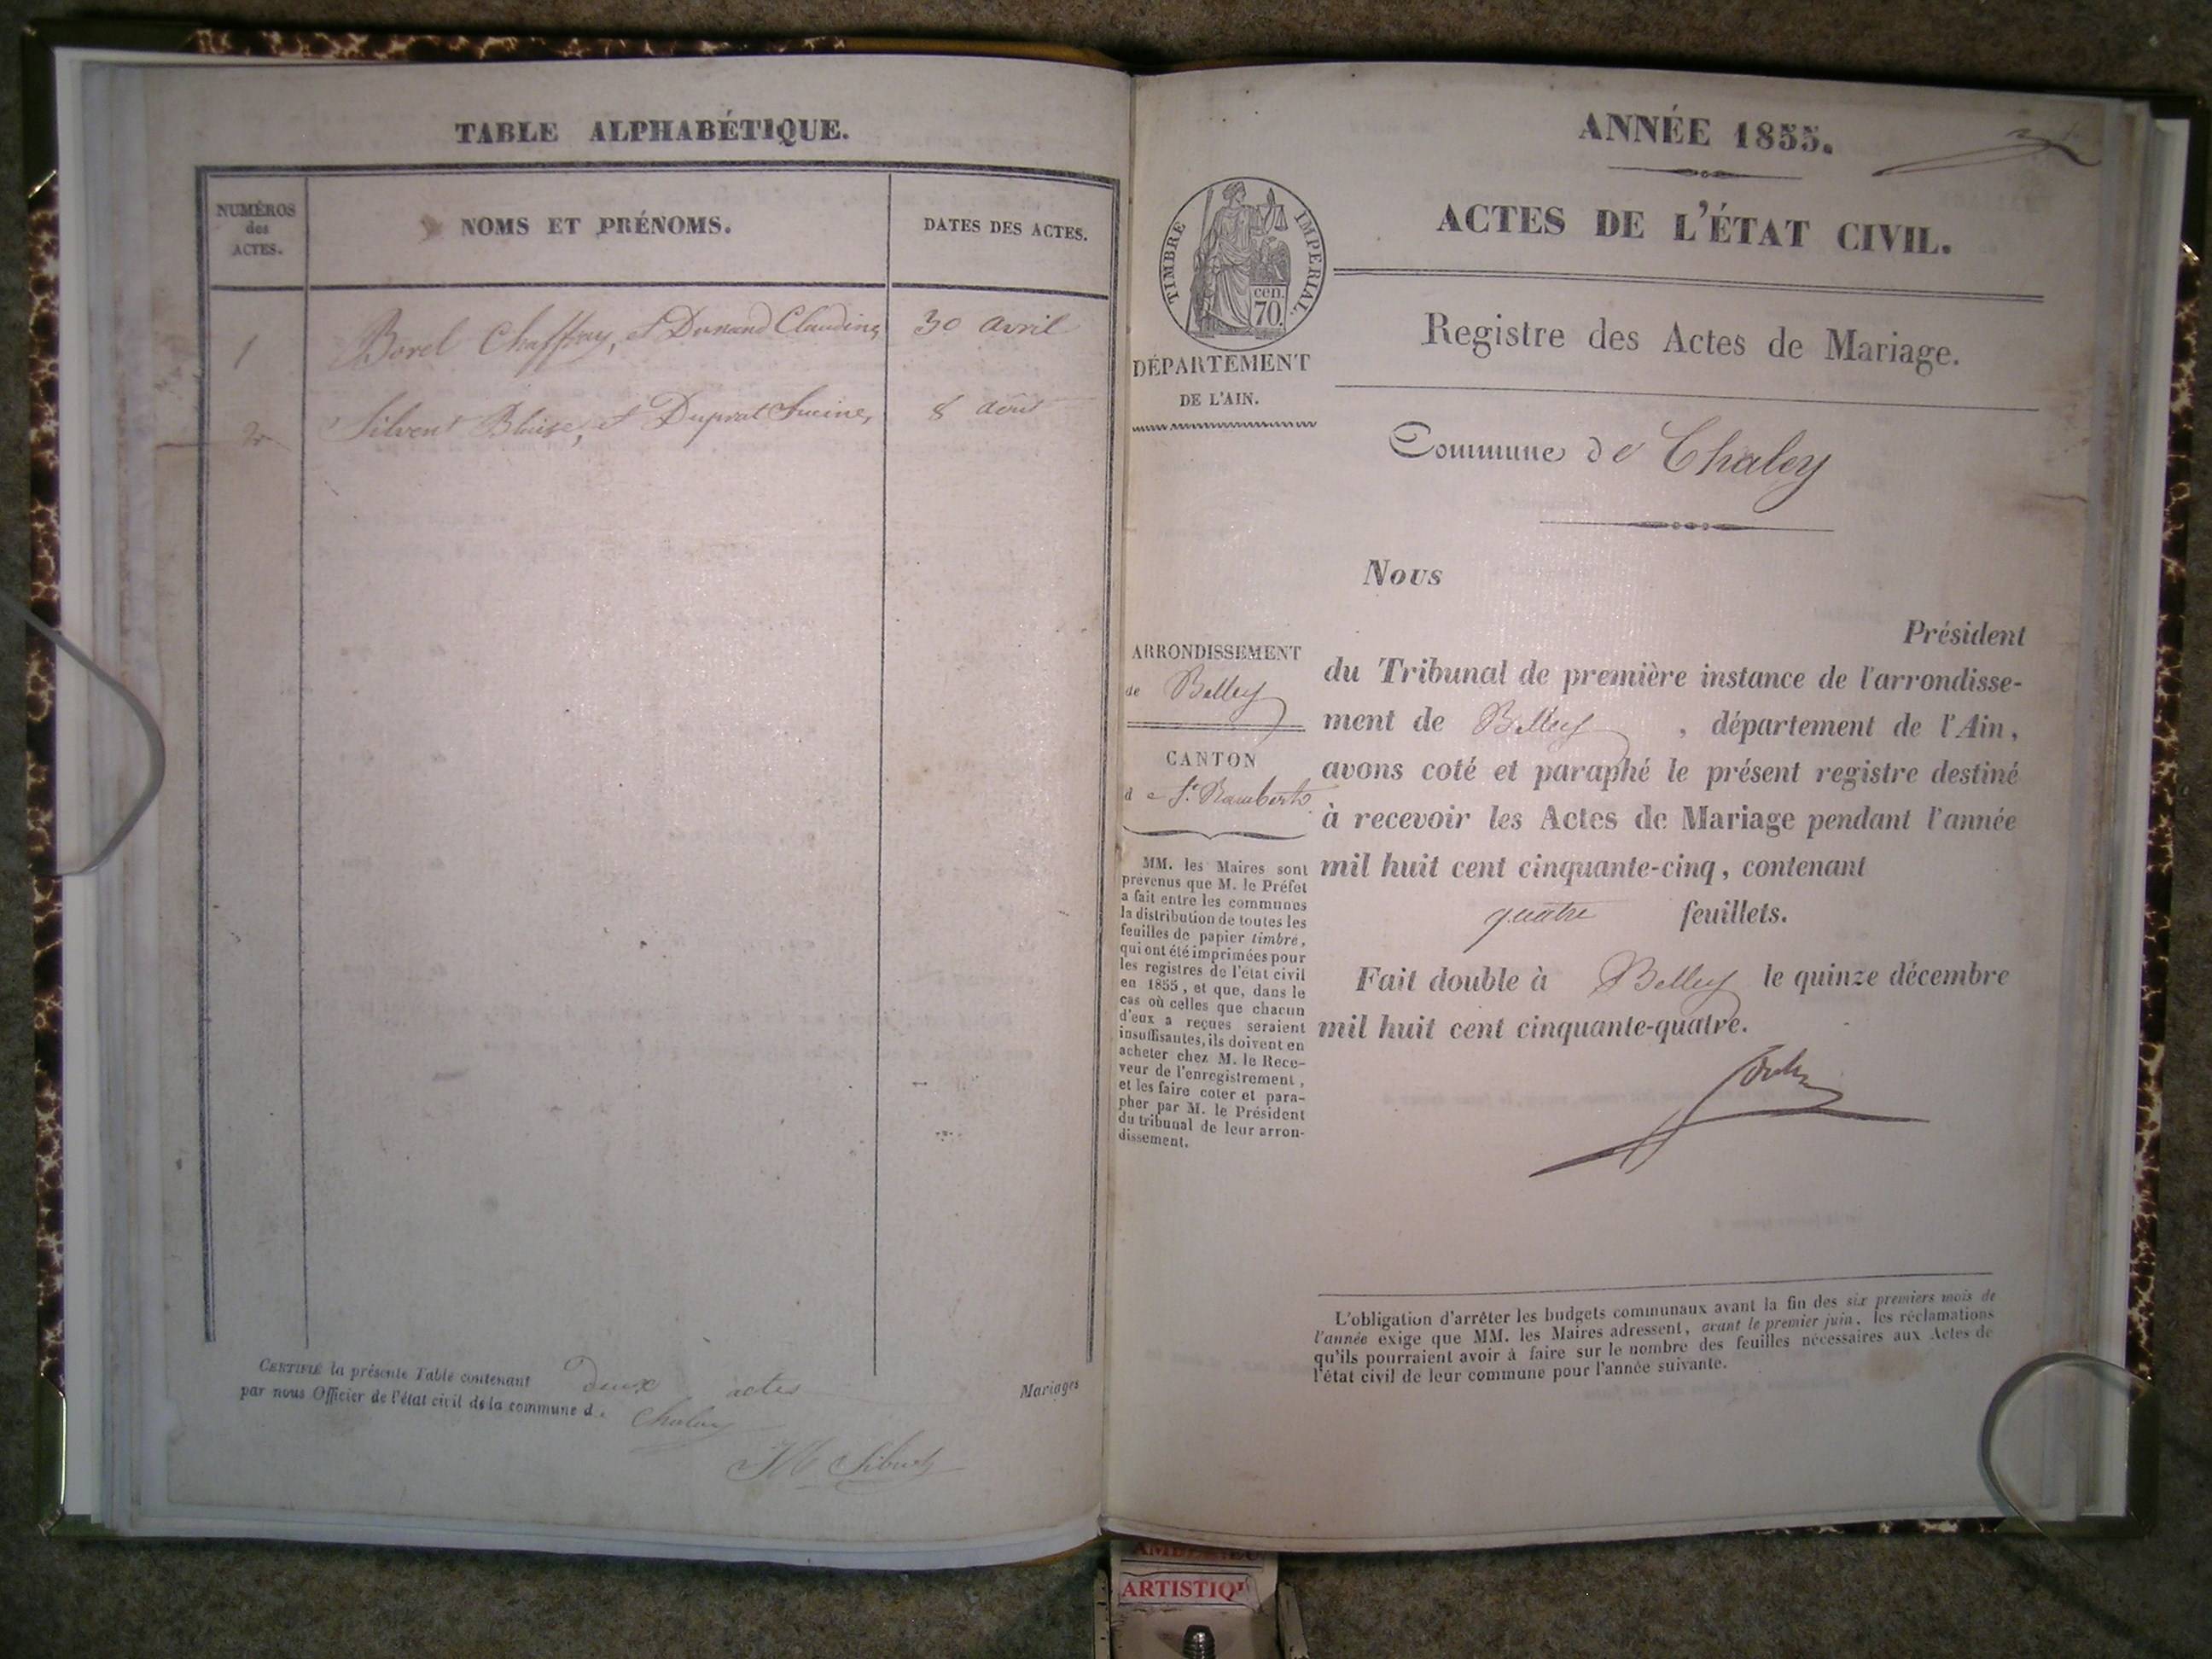 TABLE ALPHABÉTIQUE.
NUMÉROS
des
ACTES.
NOMS ET PRÉNOMS.
DATES DES ACTES.
1 Borel Chaffray, et Dunand Claudine, 30 avril
2 Silvent Blaise, et Duprat 8 août
CERTIFIÉ la présente Table contenant deux actes
par nous Officier de l'état civil de la commune de Chaley
Mariages
ANNÉE 1855.
ACTES DE L'ÉTAT CIVIL.
TIMBRE IMPERIAL.
cen.
70.
DÉPARTEMENT
DE L'AIN.
Registre des Actes de Mariage.
Commune de Chaley
ARRONDISSEMENT
de Belley
CANTON
de St. Rambert
MM. les Maires sont
prévenus que M. le Préfet
a fait entre les communes
la distribution de toutes les
feuilles de papier timbré,
qui ont été imprimées pour
les registres de l'état civil
en 1855, et que, dans le
cas où celles que chacun
d'eux a reçues seraient
insuffisantes, ils doivent en
acheter chez M. le Rece-
veur de l'enregistrement,
et les faire coter et para-
pher par M. le Président
du tribunal de leur arron-
dissement.
Nous
Président
du Tribunal de première instance de l'arrondisse-
ment de Belley, département de l'Ain,
avons coté et paraphé le présent registre destiné
à recevoir les Actes de Mariage pendant l'année
mil huit cent cinquante-cinq, contenant
quatre feuillets.
Fait double à Belley le quinze décembre
mil huit cent cinquante-quatre.
L'obligation d'arrêter les budgets communaux avant la fin des six premiers mois de
l'année exige que MM. les Maires adressent, avant le premier juin, les réclamations
qu'ils pourraient avoir à faire sur le nombre des feuilles nécessaires aux Actes de
l'état civil de leur commune pour l'année suivante.